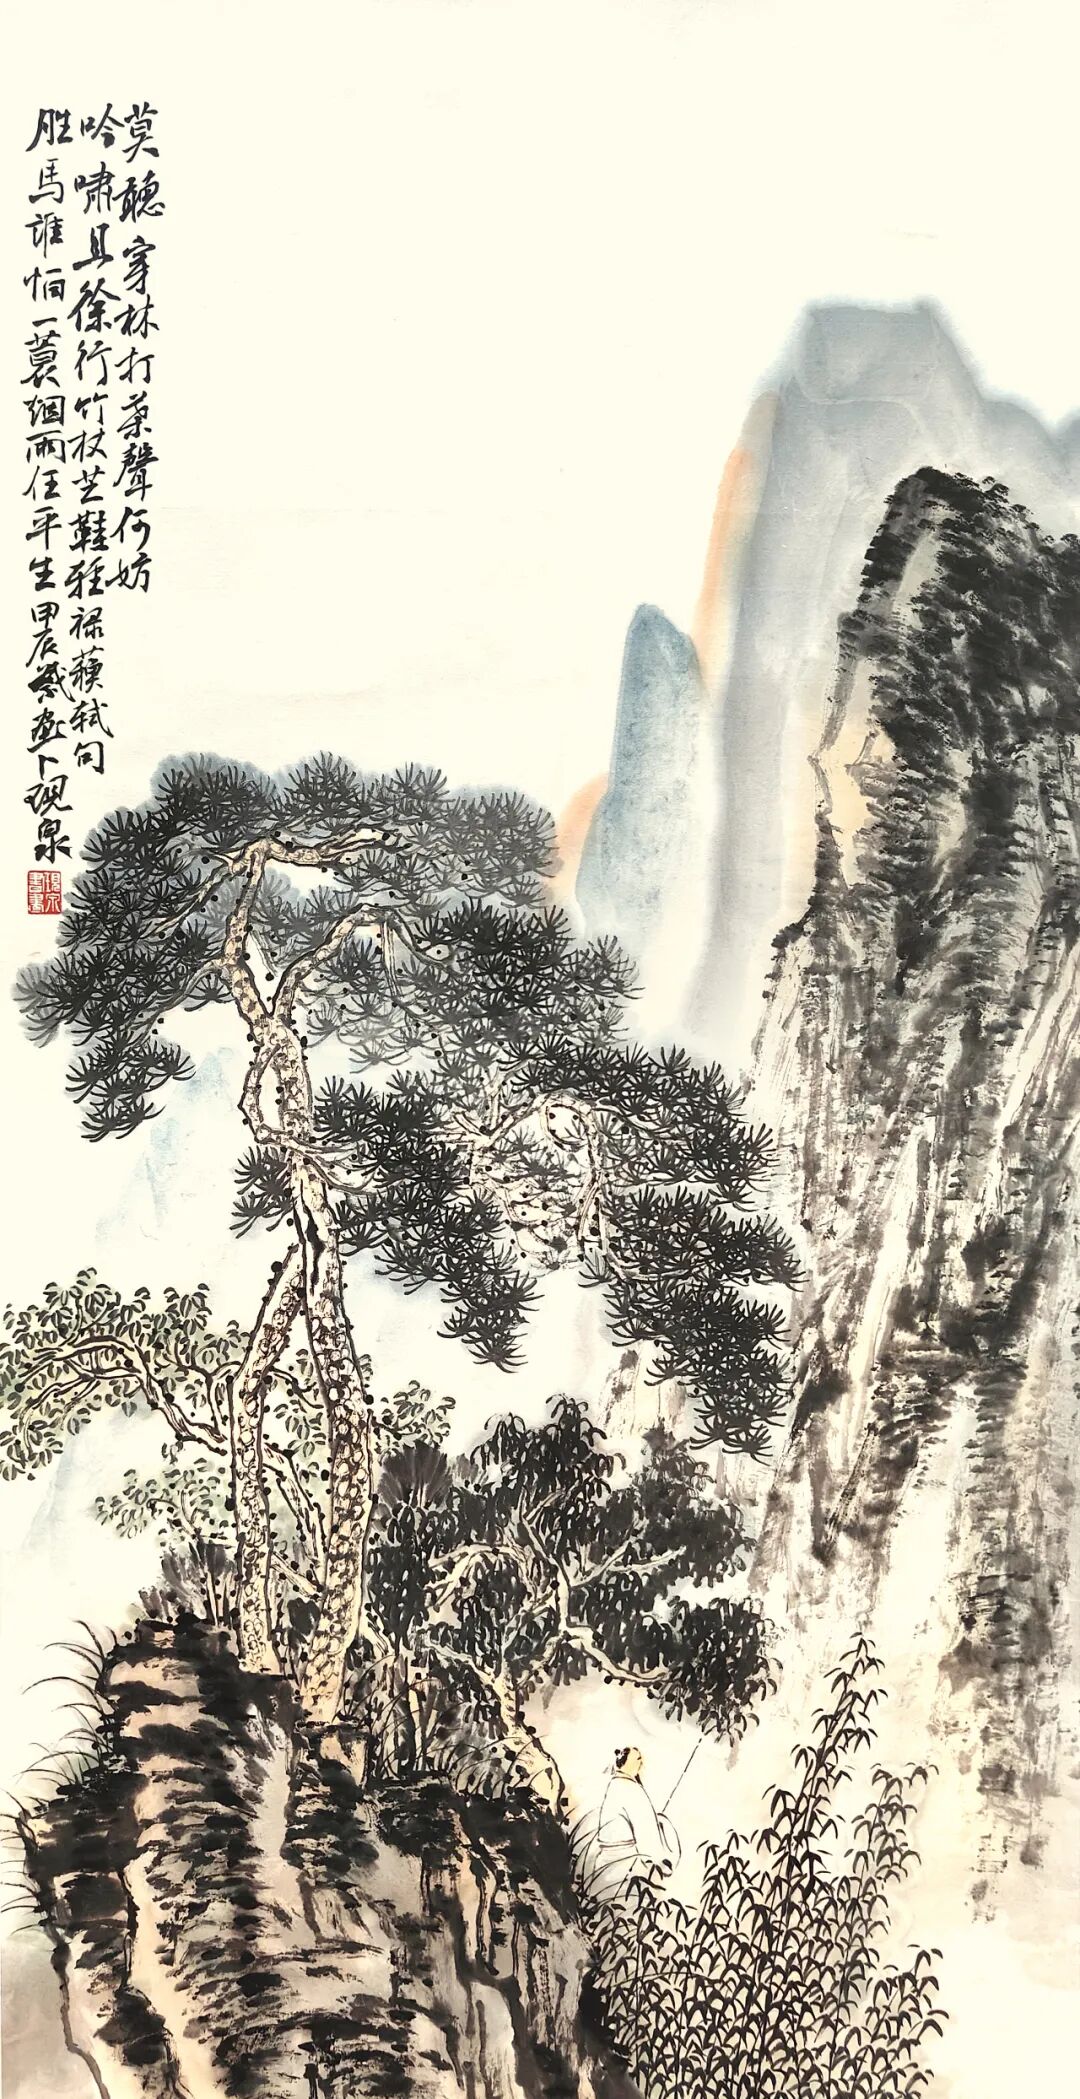 莫聽穿林打葉聲何妨
吟嘯且徐行竹杖芒鞋轻禄蘇軾句
胜馬誰怕一蓑烟雨任平生甲辰歲畫卜現泉
現泉
書畫